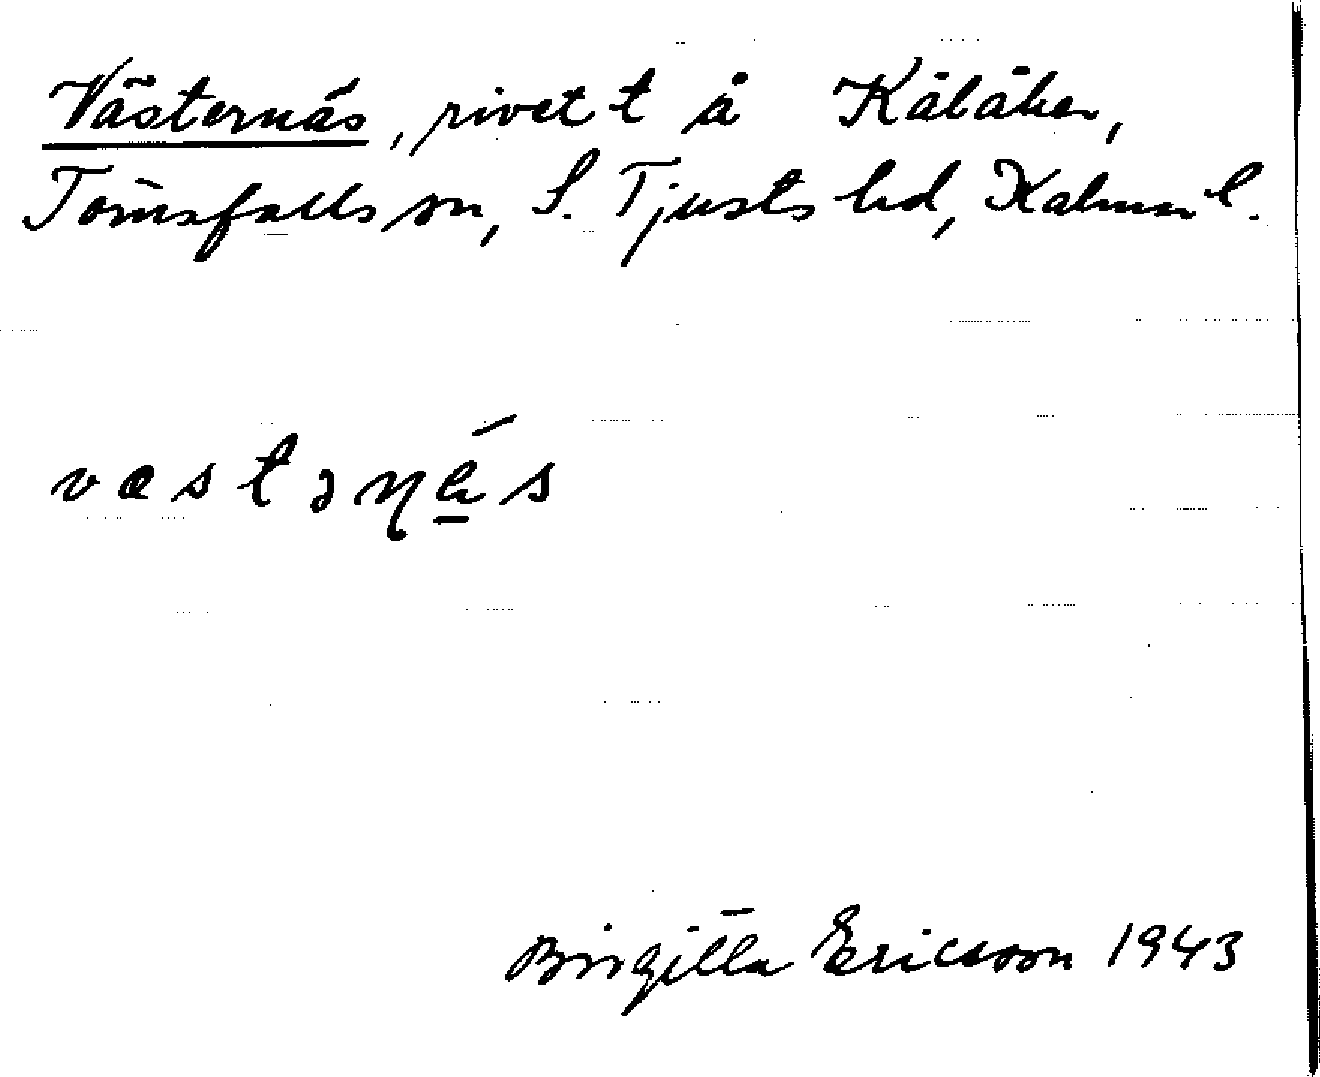 Västernäs, rivet t å Kålåker,
Törnsfalls sn, S. Tjusts hd, Kalmar l.
væstəɳǽ̲s
Birgitta Ericsson 1943